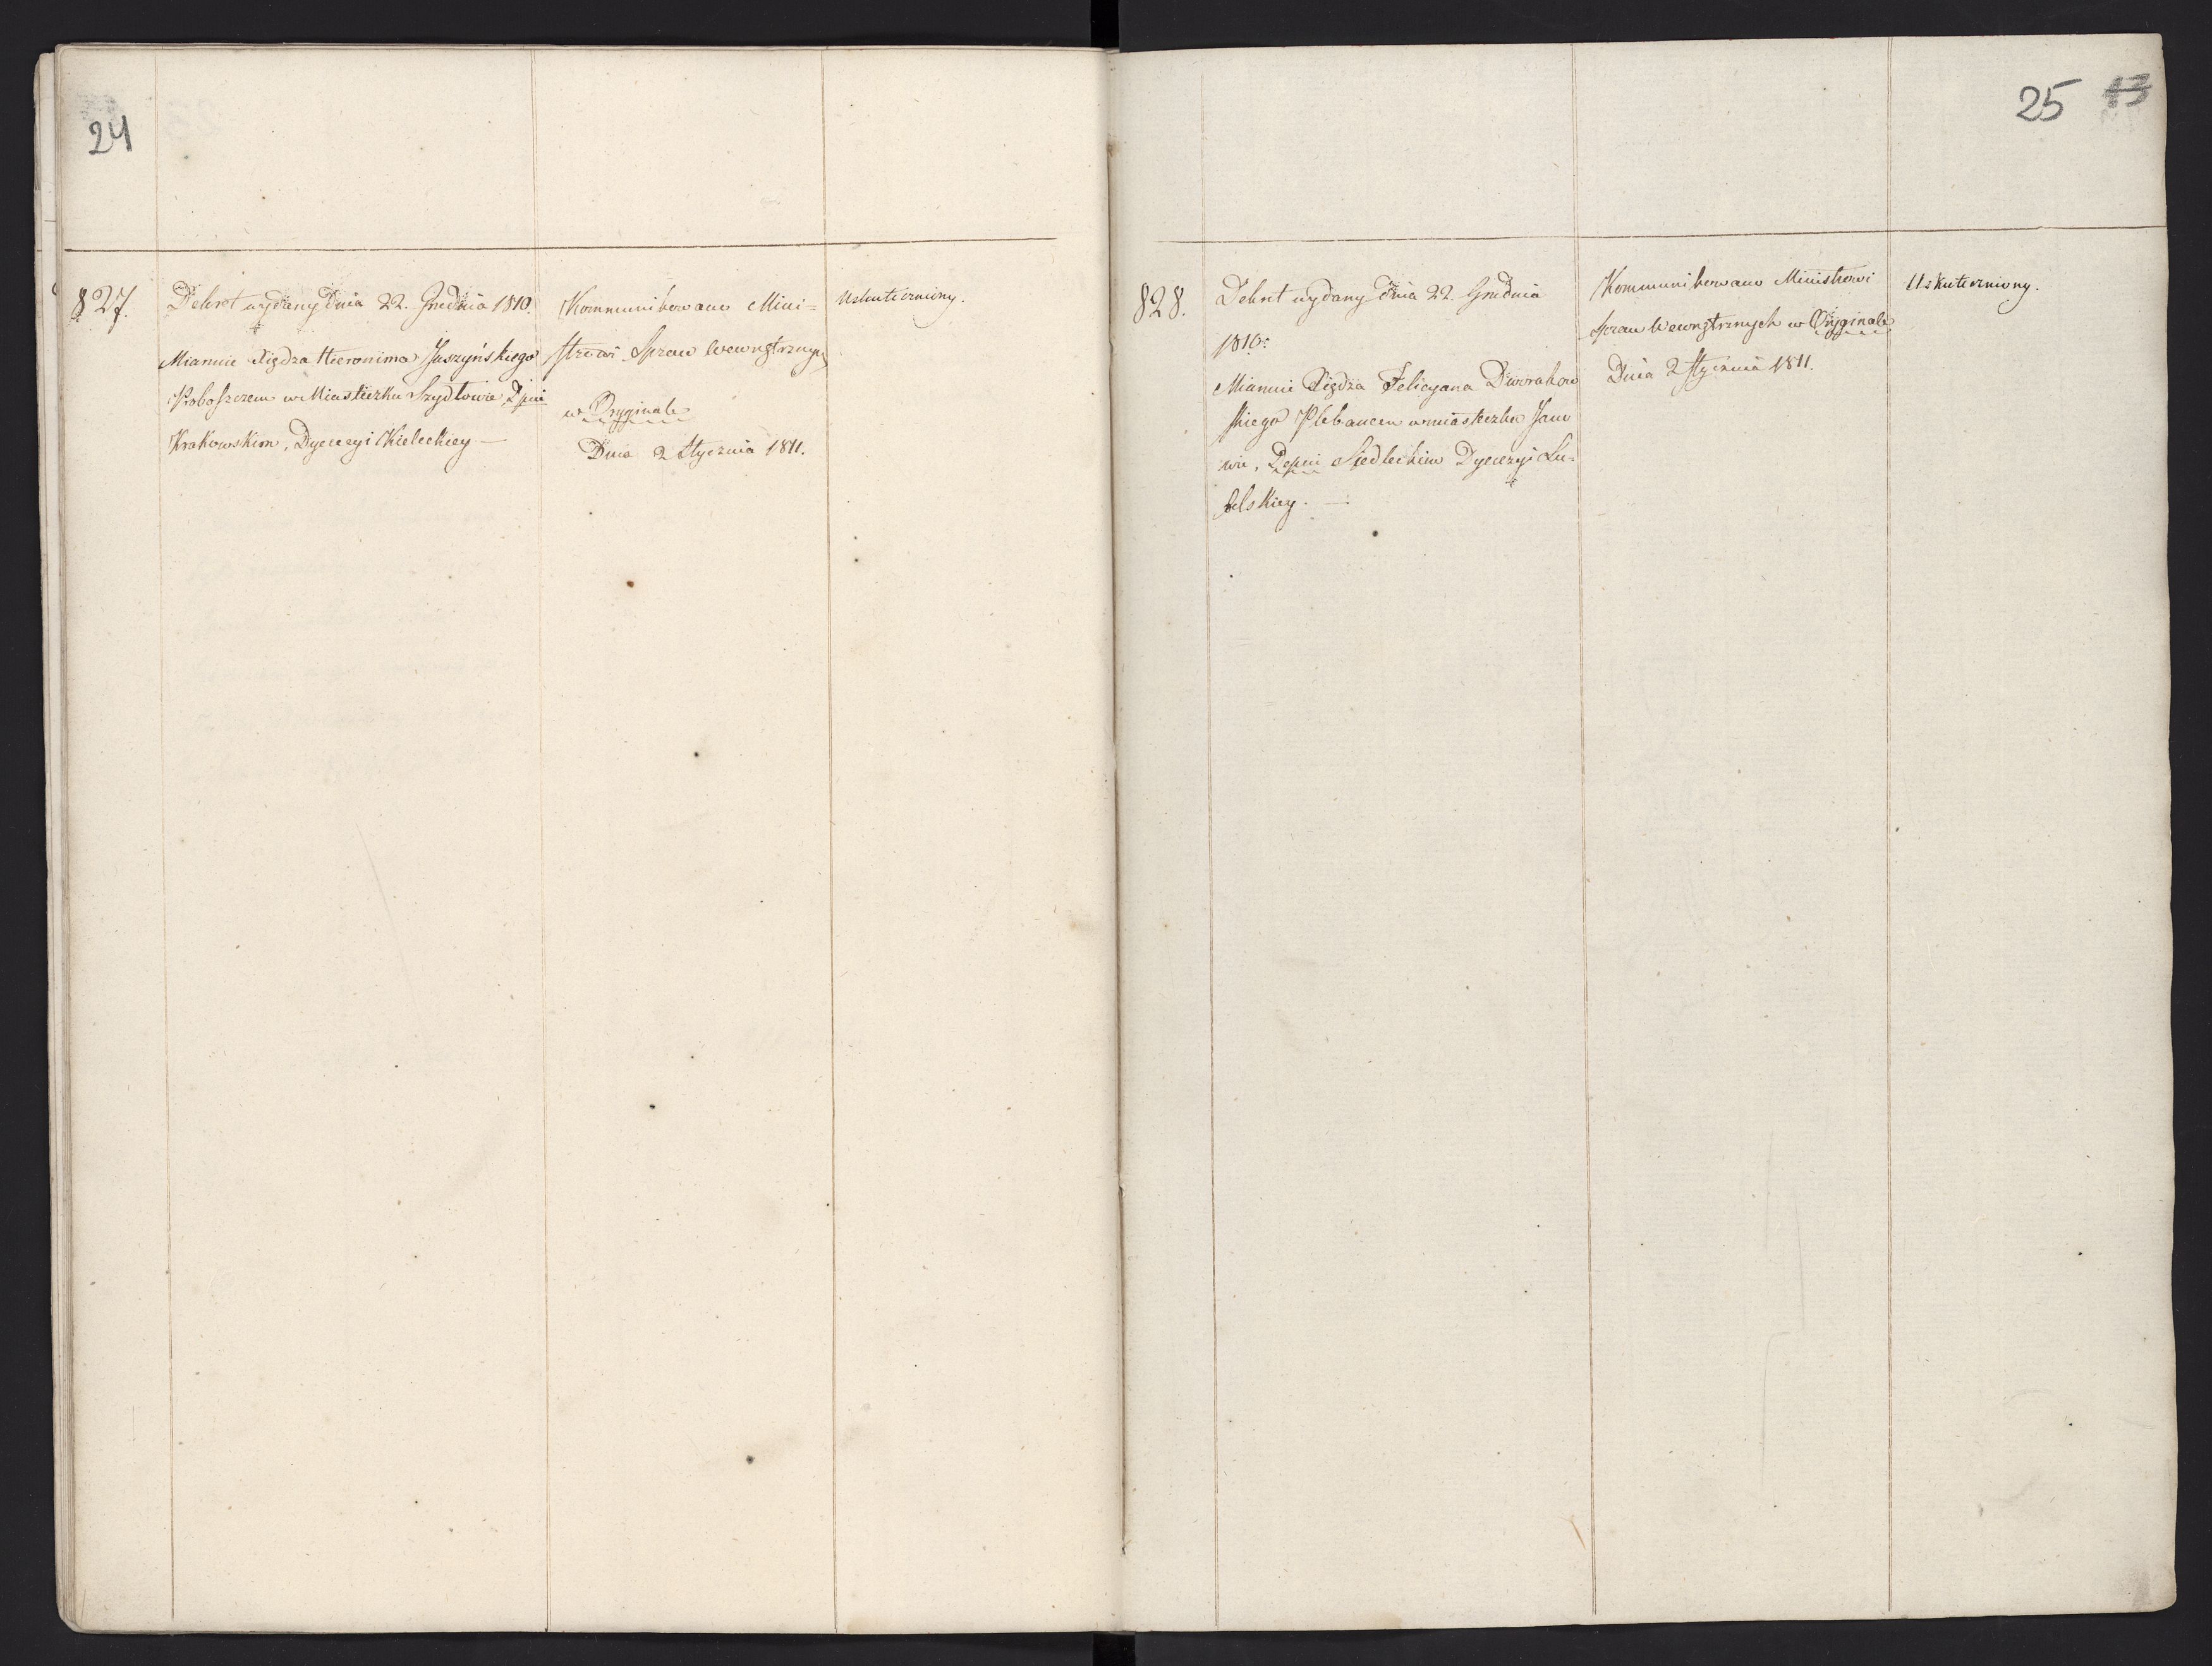 24
827.
Dekret wydany Dnia 22. Grudnia 1810.
Mianuie Xiędza Hieronima Juszyńskiego
Proboszczem w Miasteczku Szydłowie, Dpcie
Krakowskim, Dyecezyi Kieleckiey —
Kommunikowano Mini=
strowi Spraw Wewnętrznych
w Oryginale
Dnia 2 Stycznia 1811.
Uskuteczniony.
25 13
828.
Dekret wydany Dnia 22. Grudnia
1810.
Mianuie Xiędza Felicyana Dworakow
skiego Plebanem w miasteczku Jano
wie, Depcie Siedleckim Dyecezyi Lu=
belskiey. —
Kommunikowano Ministrowi
Spraw Wewnętrznych w Oryginale
Dnia 2 Stycznia 1811.
Uskuteczniony.